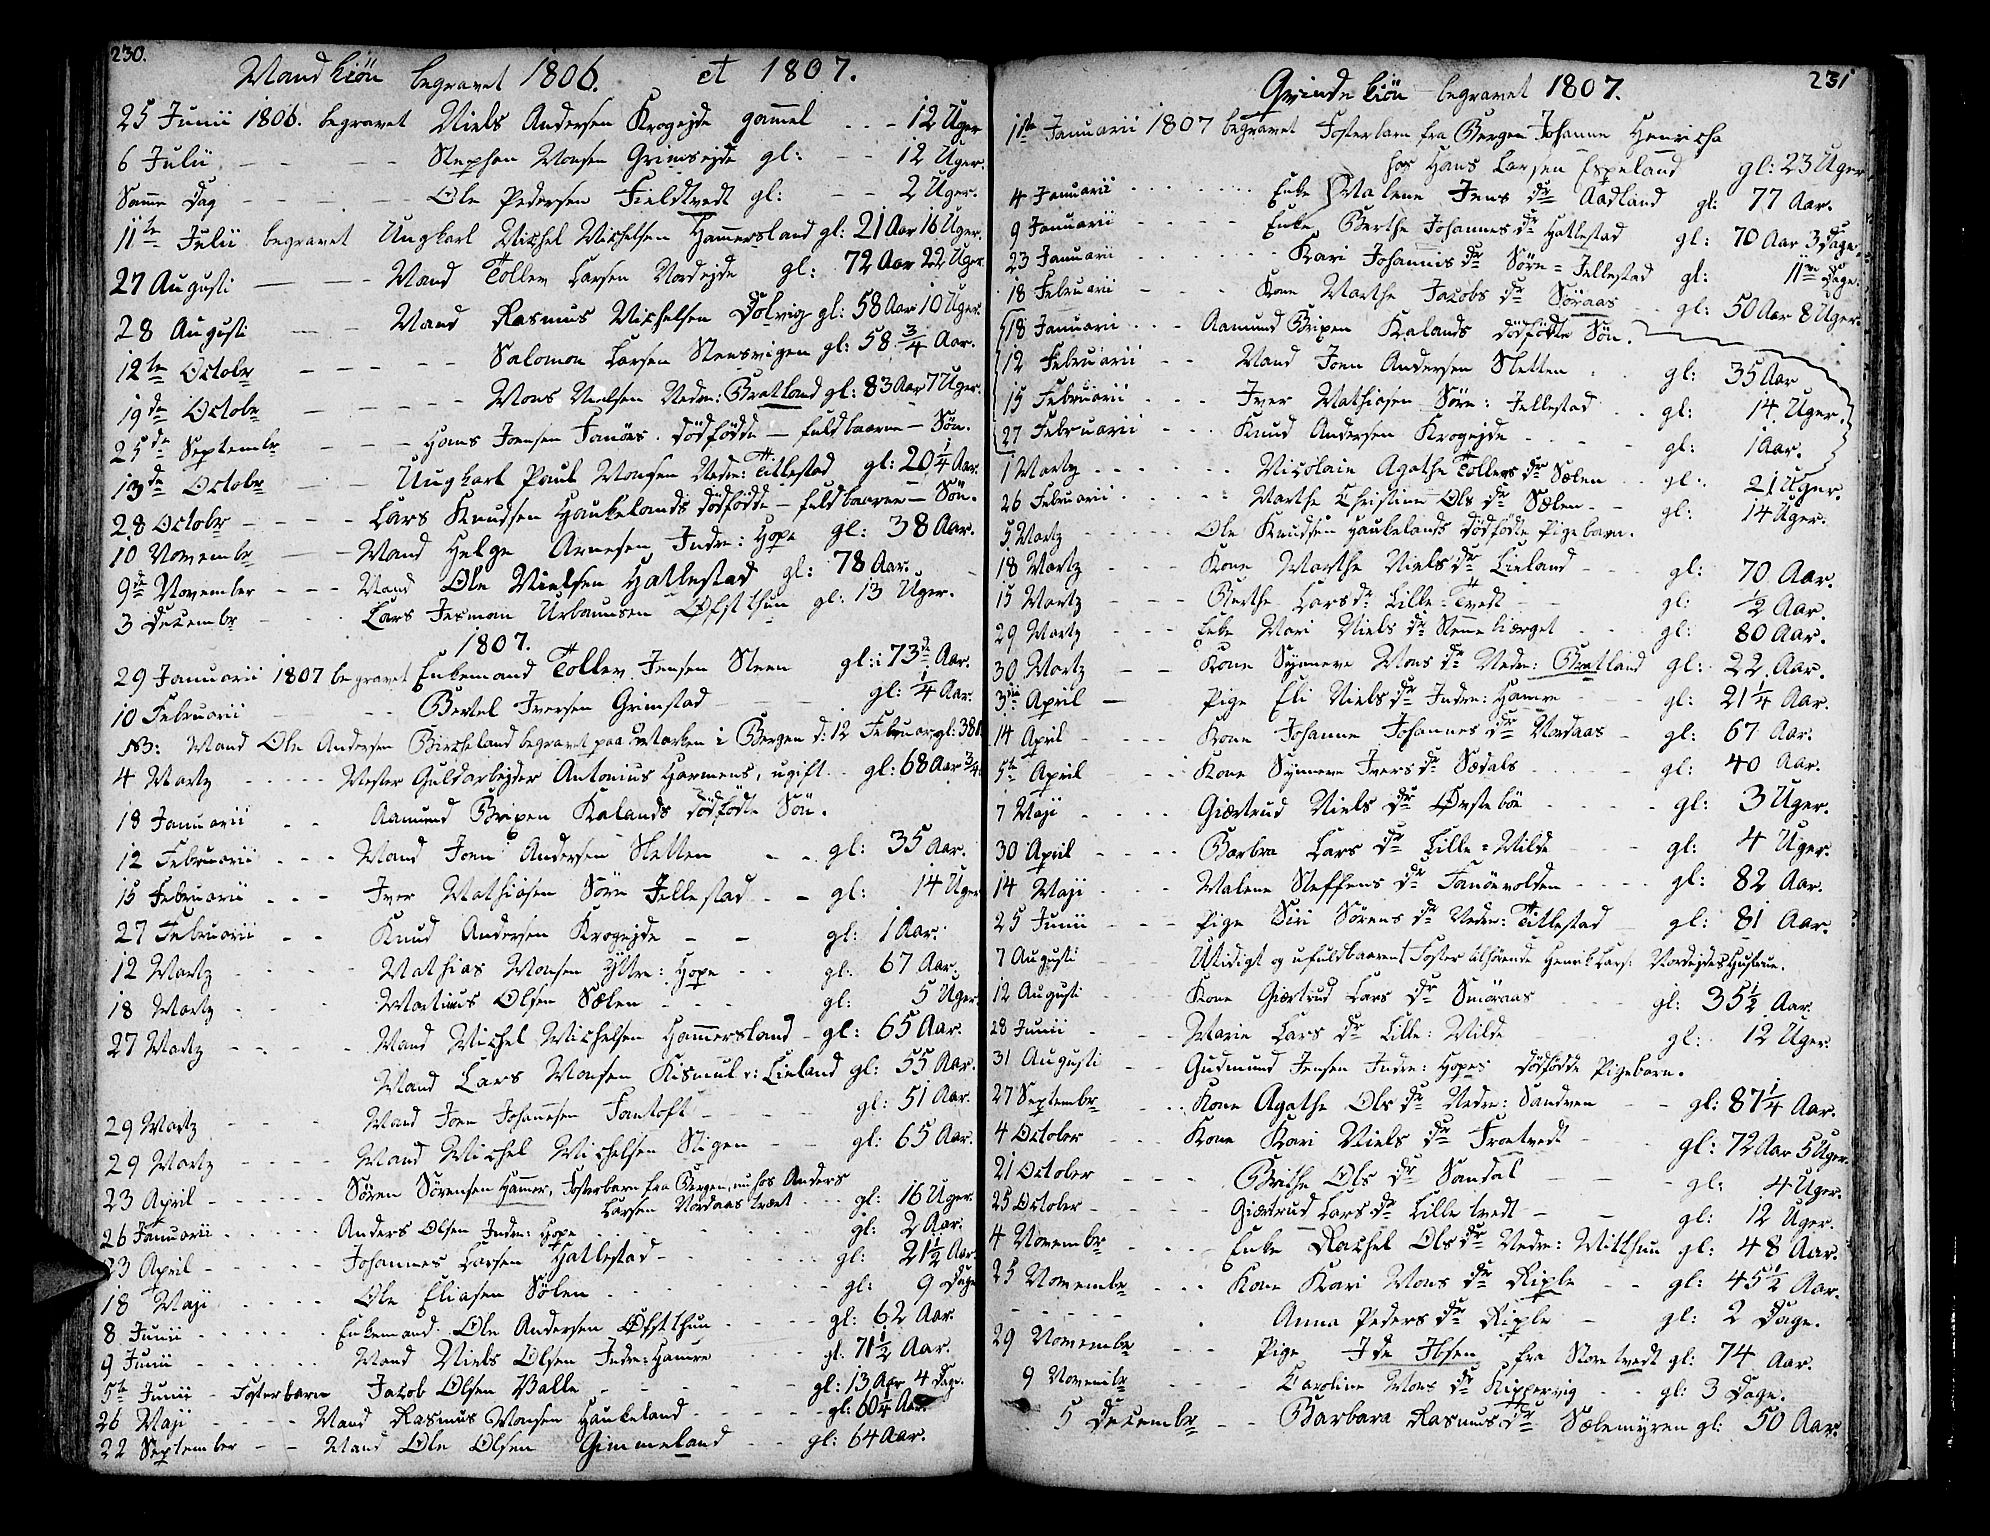 230.
Mandkiön begravet 1806. et 1807.
25 Junii 1806. begravet Niels Andersen Krogejde gammel - - - 12 Uger
6 Julii - - - - Stephen Monsen Grimsejde gl: - - 12 Uger.
Samme Dag - - - - - Ole Pedersen Fieldtvedt gl: - - 2 Uger.
11te Julii begravet Ungkarl Michel Michelsen Hammersland gl: 21 Aar 16 Uger.
27 Augusti - - - Mand Tollev Larsen Nordejde gl: 72 Aar 22 Uger.
28 Augusti - - Mand Rasmus Michelsen Dolvig gl: 58 Aar 10 Uger.
12te Octobr - - - - - Salomon Larsen Steensvigen gl: 58 3/4 Aar.
19de Octobr - - - - - - Mons Nielsen Nedre: Bratland gl: 83 Aar 7 Uger.
25de Septembr - - - Hans Joensen Fanöes dödfödde - fuldbaarne - Sön.
13de Octobr - - Ungkarl Paul Monsen Nedre: Titlestad gl: 20 1/4 Aar.
28 Octobr - - - - Lars Knudsen Haukelands dödfödde - fuldbaarne - Sön.
10 Novembr - - Mand Helge Arnesen Indre: Hope gl: 38 Aar.
9de November - - - Mand Ole Nielsen Hatlestad gl: 78 Aar.
3 Decembr - - - - Lars Jesman Urbanusen Øfstthun gl: 13 Uger.
1807.
29 Januarii 1807 begravet Enkemand Tollev Jensen Steen gl: 73 Aar.
10 Februarii - - - - Bertel Iversen Grimstad - - - gl: 1/4 Aar.
NB: Mand Ole Andersen Birkeland begravet paa Marken i Bergen d: 12 Februar gl: 38
4 Martz - - - - - Mester Guldarbejder Antonius Harmens, ugift. gl: 68 Aar 3/4
18 Januarii - - Aamund Bripen Kalands dödfödte Sön.
12 Februarii - - - Mand Joen Andersen Sletten - - gl: 35 Aar.
15 Februarii - - - Iver Mathiasen Söre Jellestad - - gl: 14 Uger
27 Februarii - - Knud Andersen Krogejde - - gl: 1 Aar.
12 Martz - - - - Mathias Monsen Yttre: Hope - - gl: 67 Aar.
18 Martz - - Martinus Olsen Sælen - - - gl: 5 Uger
27 Martz - - - - Mand Michel Michelsen Hammersland - gl: 65 Aar.
Mand Lars Monsen Kismul v: Lieland gl: 55 Aar.
29 Martz - - - Mand Joen Johannesen Fantoft - - - gl: 51 Aar.
29 Martz - - - - Mand Michel Michelsen Stigen - - gl: 65 Aar.
23 April - - - - - Sören Sörensen Hamer, Fosterbarn fra Bergen, nu hos Anders
Larsen Nordaas træet - - gl: 16 Uger.
26 Januarii - - - - Anders Olsen Indre: Hope - - - gl: 2 Aar.
23 April - - - - - Johannes Larsen Hatlestad - - - gl: 21 1/2 Aar
18 Maji - - - - - Ole Eliasen Sölen - - - gl: 9 Dage
8 Junii - - - - - - Enkemand Ole Andersen Øfstthun - - - gl: 62 Aar.
9 Junii - - - - - - Mand Niels Olsen Indre: Hamre - - - gl: 71 1/2 Aar.
5te Junii - Fosterbarn Jacob Olsen Valle - - - - gl: 13 Aar 4 Dage.
26 Maji - - - - Mand Rasmus Monsen Haukeland - - - - gl: 60 1/4 Aar.
22 September - - Mand Ole Olsen Gimmeland - - gl: 64 Aar.
231
Qvindekiön begravet 1807.
1ste Januarii 1807 begravet Fosterbarn fra Bergen Johanne Henricha
hos Hans Larsen Espeland gl: 23 Uger
4 Januarii - - - - - - Enke Malene Jens dr Aadland gl: 77 Aar.
9 Januarii - - - - - Enke Berthe Johannes dr Hatlestad gl: 70 Aar 3 Dage.
23 Januarii - - - - - - Kari Johannis dr Söre = Jellestad gl: 11 Dage.
18 Februarii - - - - Kone Marthe Jacobs dr Söraas - - gl: 50 Aar 8 Uger.
18 Januarii - - - Aamund Bripen Kalands dödfödte Sön.
12 Februarii - - Mand Joen Andersen Sletten - - gl: 35 Aar
15 Februarii - - - Iver Mathiasen Söre: Jellestad - - gl: 14 Uger.
27 Februarii - - - Knud Andersen Krogejde - - - - gl: 1 Aar.
1 Martz - - - - - - Nicolaie Agathe Tollevs dr Sælen - - gl: 21 Uger.
26 Februarii - - - - - Marthe Christine Ols dr Sælen - - gl: 14 Uger.
5 Martz - - - - - Ole Knudsen Haukelands dödfödte Pigebarn.
18 Martz - - - - Kone Marthe Niels dr Lieland - - - gl: 70 Aar.
15 Martz - - - - Berthe Lars dr Lille = Tvedt - - gl: 1/2 Aar.
29 Martz - - - - Enke Mari Niels dr Stenekiærget - - gl: 80 Aar.
30 Martz - - Kone Synneve Mons dr Nedre: Bratland gl: 22 Aar.
3die April - Pige Eli Niels dr Indre: Hamre - - gl: 21 1/4 Aar.
14 April - - - - Kone Johanne Johannes dr Nordaas - gl: 67 Aar.
5te April - - - - Kone Synneve Ivers dr Sædals - - - - gl: 40 Aar.
7 Maji - - - - Giertrud Niels dr Øvstebön - - - - gl: 3 Uger.
30 April - - - - Barbra Lars dr Lille = Milde - - gl: 4 Uger.
14 Maji - - - - Malene Steffens dr Fanöevolden - - - - gl: 82 Aar.
25 Junii - - - - Pige Siri Sörens dr Nedre: Titlestad - gl: 81 Aar.
7 Augusti - - Utidigt og ufuldbaarent Foster tilhörende Henrik Lars: Nordejdes Hustrue.
12 Augusti - - - Kone Giertrud Lars dr Smöraas - - - gl: 35 1/2 Aar.
28 Junii - - - Marie Lars dr Lille: Milde - - - gl: 12 Uger.
31 Augusti - - Gudmund Jensen Indre: Hopes dödfödde Pigebarn.
27 Septembr - - - Kone Agathe Ols dr Nedre: Sandven - - gl: 87 1/4 Aar.
4 October - - - Kone Kari Niels dr Troetvedt - - gl: 72 Aar 5 Uger.
21 October - - - - Brithe Ols dr Sandal - - - gl: 4 Uger.
25 October - - - - - Giertrud Lars dr Lille tvedt - - gl: 12 Uger.
4 Novembr - - - - Enke Rachel Ols dr Nedre: Mitthun gl: 48 Aar.
25 Novembr - - - Kone Kari Mons dr Riple - - gl: 45 1/2 Aar.
- - - - - Anna Peders dr Riple - gl: 2 Dage.
29 Novembr - - - Pige Ide Ibsen fra Storetvedt gl: 74 Aar.
9 Novembr - - - - Caroline Mons dr Kippervig - - gl: 3 Dage.
5 Decembr - - Barbara Rasmus dr Sælemyren gl: 50 Aar.